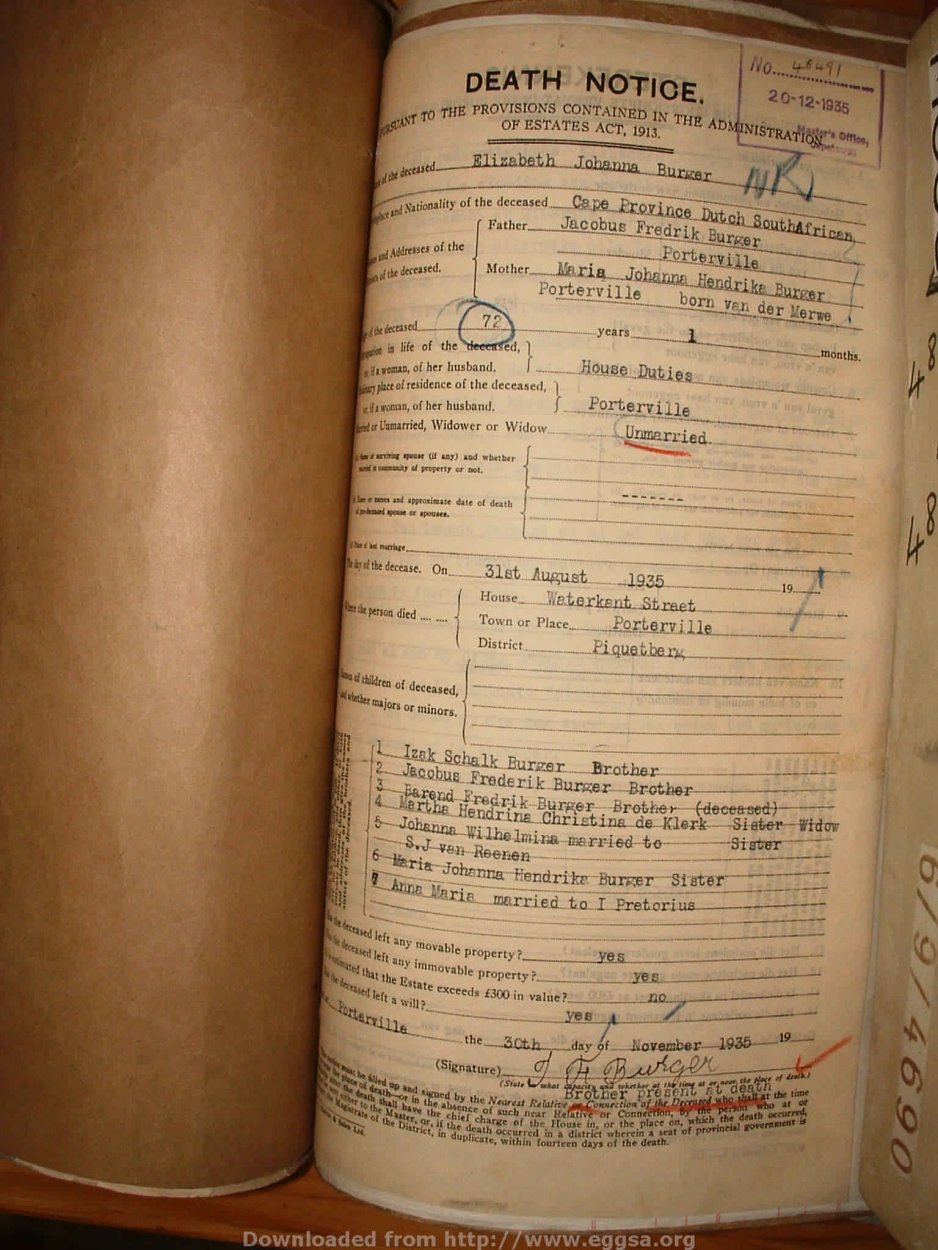 No. 46491
20-12-1935
Master's Office,
DEATH NOTICE.
PURSUANT TO THE PROVISIONS CONTAINED IN THE ADMINISTRATION
OF ESTATES ACT, 1913.
of the deceased Elizabeth Johanna Burger
NR
place and Nationality of the deceased Cape Province Dutch SouthAfrican
Father Jacobus Fredrik Burger
Porterville
and Addresses of the
of the deceased.
Mother Maria Johanna Hendrika Burger
Porterville born van der Merwe
of the deceased 72 years 1 months.
in life of the deceased,
or, if a woman, of her husband. House Duties
place of residence of the deceased,
or, if a woman, of her husband. Porterville
or Unmarried, Widower or Widow Unmarried.
Name of surviving spouse (if any) and whether
married in community of property or not.
or names and approximate date of death
of pre-deceased spouse or spouses.
-------
Place of last marriage
The day of the decease. On 31st August 1935 19
House Waterkant Street
Where the person died .... .... Town or Place Porterville
District Piquetberg
of children of deceased,
and whether majors or minors.
1 Izak Schalk Burger Brother
2 Jacobus Frederik Burger Brother
3 Barend Fredrik Burger Brother (deceased)
4 Martha Hendrina Christina de Klerk Sister Widow
5 Johanna Wilhelmina married to Sister
S.J van Reenen
6 Maria Johanna Hendrika Burger Sister
7 Anna Maria married to I Pretorius
the deceased left any movable property? yes
the deceased left any immovable property? yes
estimated that the Estate exceeds £300 in value? no
the deceased left a will? yes
Porterville the 30th day of November 1935 19
(Signature) J F Burger
(State in what capacity and whether at the time at or near the place of death.)
Brother present at death
must be filled up and signed by the Nearest Relative or Connection of the Deceased who shall at the time
the place of death—or in the absence of such near Relative or Connection, by the person who at or
after the death shall have the chief charge of the House in, or the place on, which the death occurred,
either to the Master, or, if the death occurred in a district wherein a seat of provincial government is
Magistrate of the District, in duplicate, within fourteen days of the death.
6/9/4690
Downloaded from http://www.eggsa.org